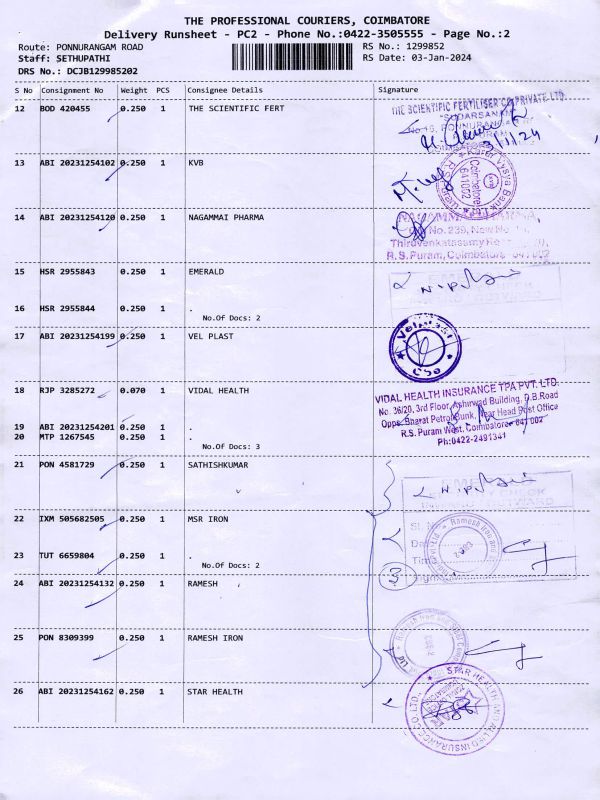 THE PROFESSIONAL COURIERS, COIMBATORE
Delivery Runsheet - PC2 - Phone No.:0422-3505555 - Page No.:2
Route: PONNURANGAM ROAD
RS No.: 1299852
Staff: SETHUPATHI
RS Date: 03-Jan-2024
DRS No.: DCJB129985202
S No Consignment No Weight PCS Consignee Details Signature
12 BOD 420455 0.250 1 THE SCIENTIFIC FERT
THE SCIENTIFIC FERTILISER CO PRIVATE LTD.
"SUDARSANAM"
3/1/24
13 ABI 20231254102 0.250 1 KVB
Karur Vysya Bank
Coimbatore
641002
14 ABI 20231254120 0.250 1 NAGAMMAI PHARMA
NAGAMMAI PHARMA,
Old No. 239, New No.
Thiruvenkatasamy Road
R.S. Puram, Coimbatore - 641 002
15 HSR 2955843 0.250 1 EMERALD
16 HSR 2955844 0.250 1 .
No.Of Docs: 2
17 ABI 20231254199 0.250 1 VEL PLAST
Velplast
Cbe
18 RJP 3285272 0.070 1 VIDAL HEALTH
VIDAL HEALTH INSURANCE TPA PVT. LTD.
No. 36/20, 3rd Floor, Ashirwad Building, D.B.Road
Opps. Bharat Petrol Bunk, Near Head Post Office
R.S. Puram West, Coimbatore- 641 002
Ph:0422-2491341
19 ABI 20231254201 0.250 1 .
20 MTP 1267545 0.250 1 .
No.Of Docs: 3
21 PON 4581729 0.250 1 SATHISHKUMAR
22 IXM 505682505 0.250 1 MSR IRON
Ramesh Iron and
23 TUT 6659804 0.250 1 .
No.Of Docs: 2
3
24 ABI 20231254132 0.250 1 RAMESH
25 PON 8309399 0.250 1 RAMESH IRON
26 ABI 20231254162 0.250 1 STAR HEALTH
STAR HEALTH AND ALLIED INSURANCE CO LTD.